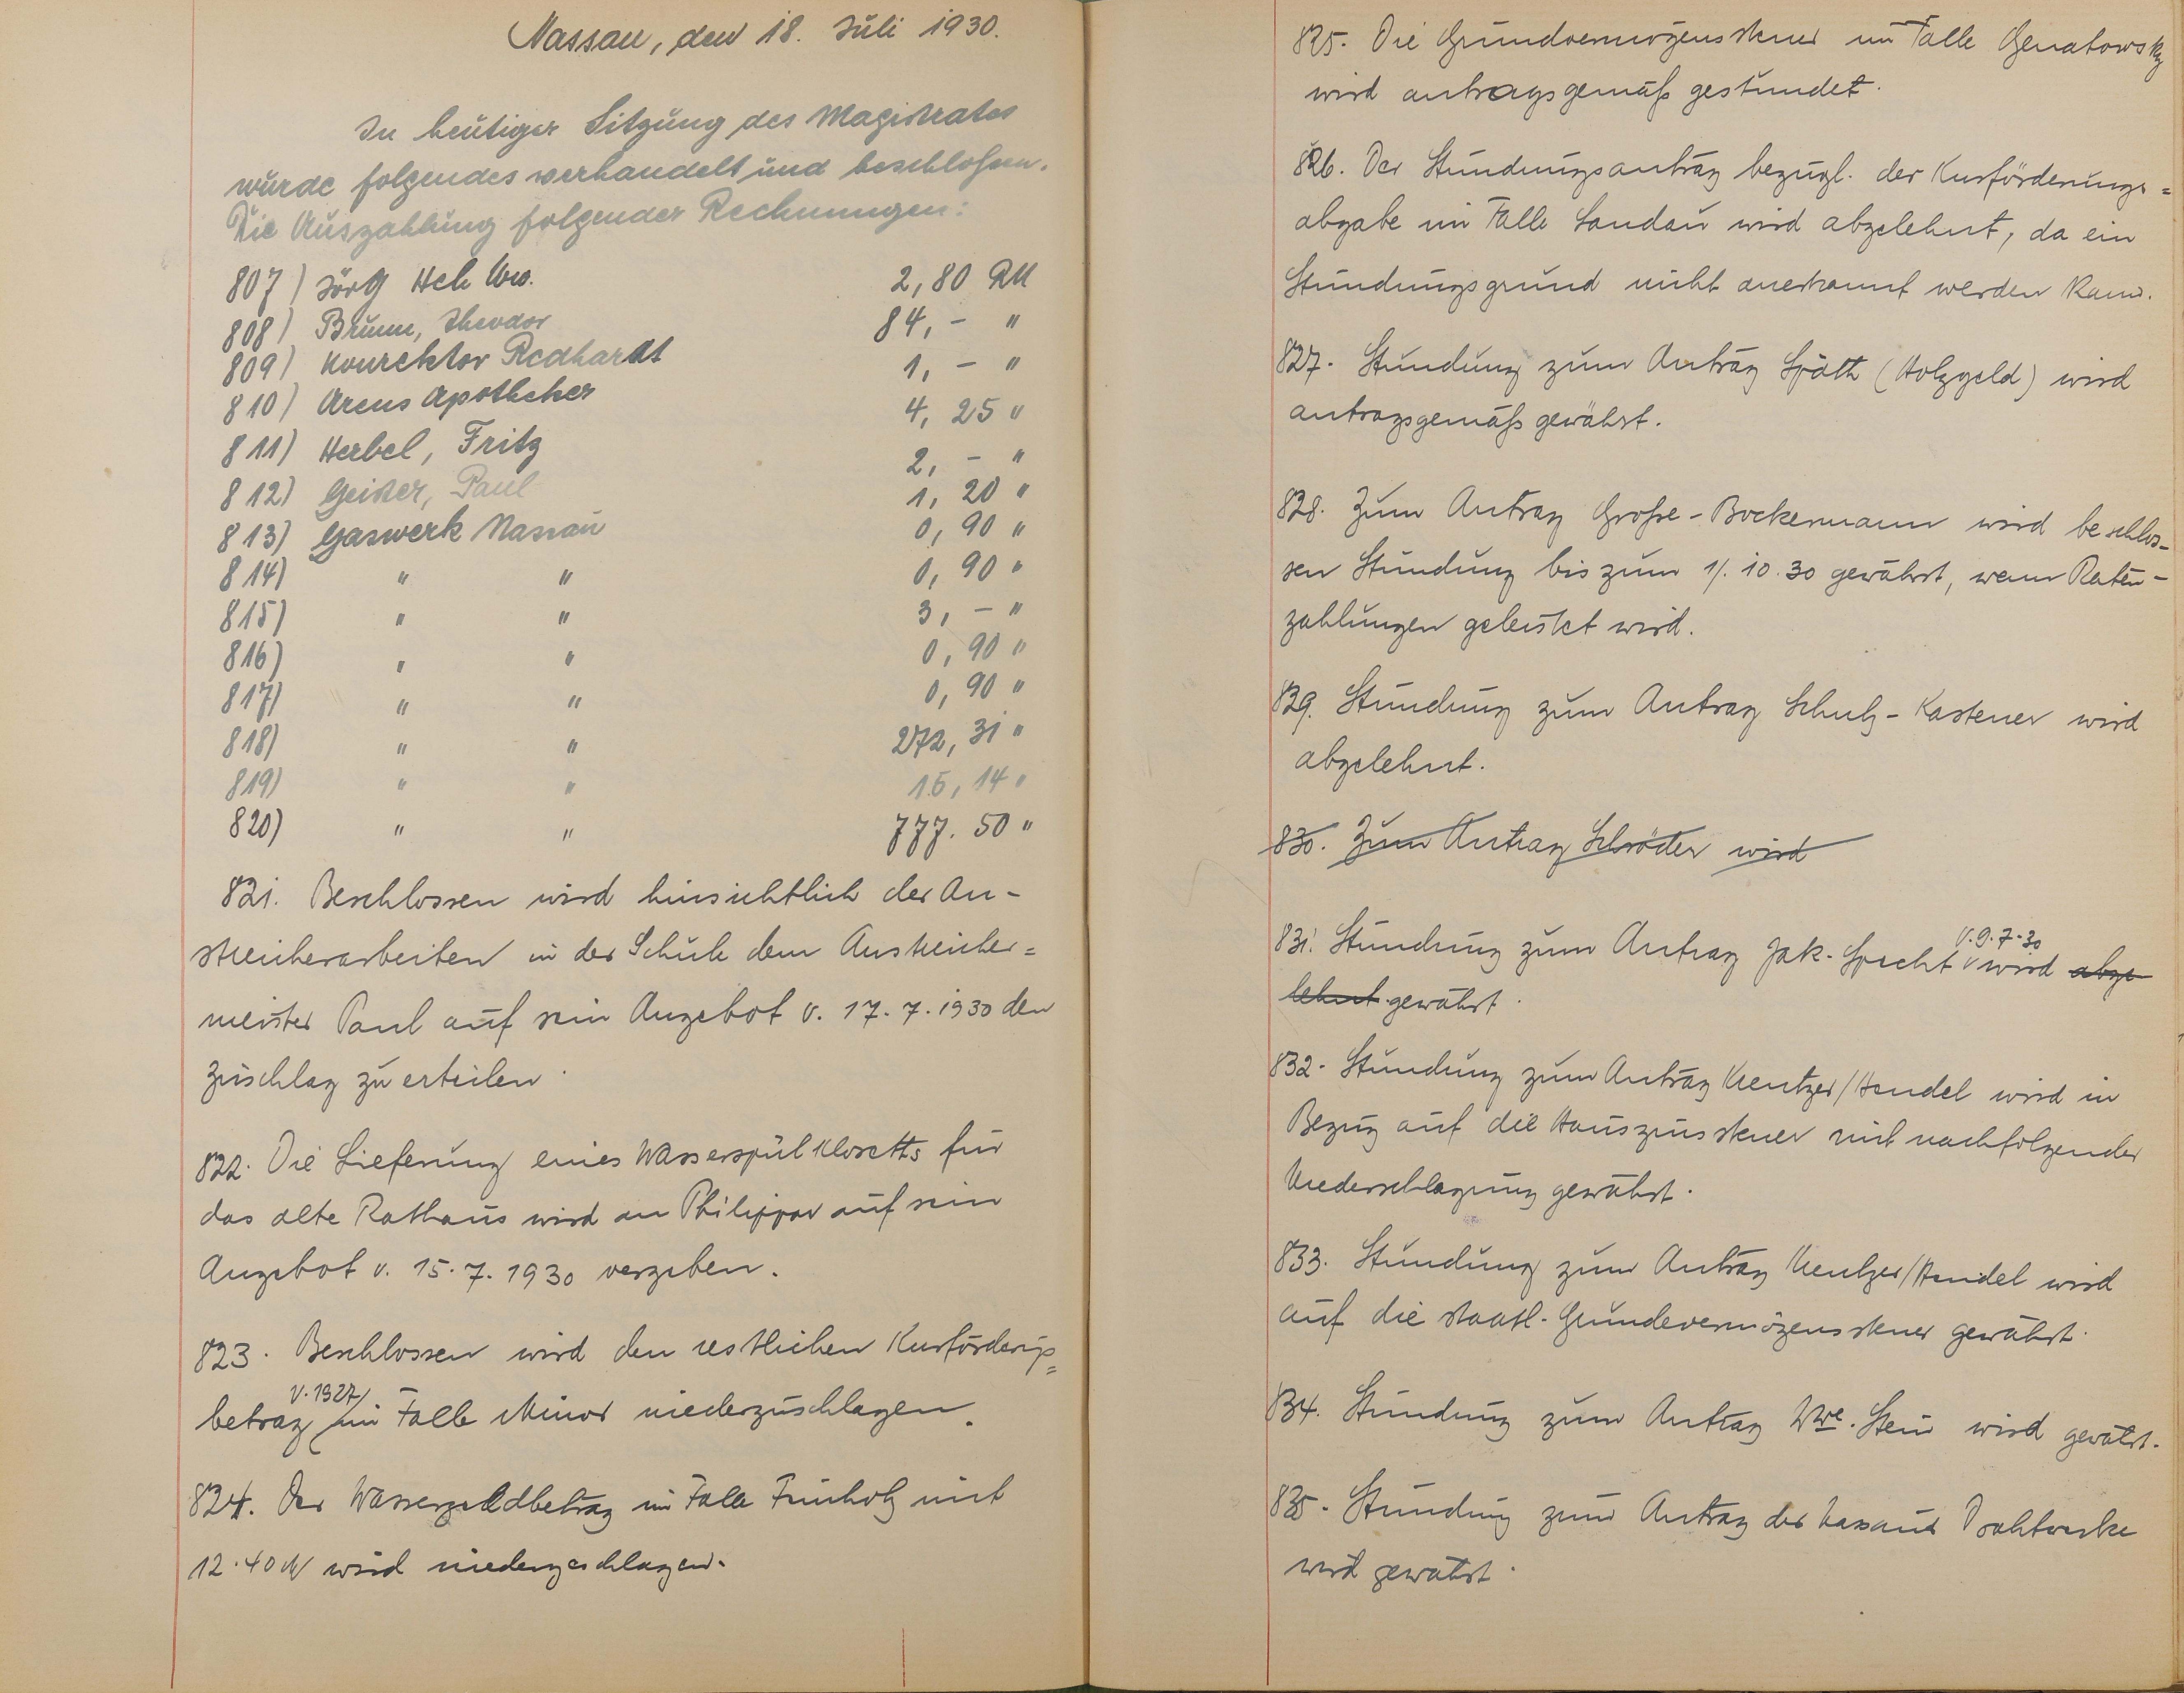 Nassau, den 18. Juli 1930.
In heutiger Sitzung des Magistrates
wurde folgendes verhandelt und beschloßen.
Die Auszahlung folgender Rechnungen:
807) Jörg Hch Ww. 2,80 RM
808) Brum, Theodor 84,- "
809) Konrektor Redhardt 1,- "
810) Arcus Apotheker 4,25 "
811) Herbel, Fritz 2,- "
812) Geister, Paul 1,20 "
813) Gaswerk Nassau 0,90 "
814) " " 0,90 "
815) " " 3,- "
816) " " 0,90 "
817) " " 0,90 "
818) " " 272,31 "
819) " " 15,14 "
820) " " 777.50 "
821. Beschlossen wird hinsichtlich der An-
streicherarbeiten in der Schule dem Anstreicher=
meister Paul auf sein Angebot v. 17.7.1930 den
Zuschlag zu erteilen.
822. Die Lieferung eines Wasserspülklosetts für
das alte Rathaus wird an Philippar auf sein
Angebot v. 15.7.1930 vergeben.
823. Beschlossen wird den restlichen Kurförderungs=
betrag v. 1927 im Falle Minor niederzuschlagen.
824. Der Wassergeldbetrag im Falle Feinholz mit
12.40 M wird niedergeschlagen.
825. Die Grundvermögenssteuer im Falle Genatowsky
wird antragsgemäß gestundet.
826. Der Stundungsantrag bezügl. der Kurförderungs=
abgabe im Falle Landau wird abgelehnt, da ein
Stundungsgrund nicht anerkannt werden kann.
827. Stundung zum Antrag Späth (Holzgeld) wird
antragsgemäß gewährt.
828. Zum Antrag Große-Bockermann wird beschlos-
sen Stundung bis zum 1/.10.30 gewährt, wenn Raten-
zahlungen geleistet wird.
829. Stundung zum Antrag Schulz-Kastener wird
abgelehnt.
830. Zum Antrag Schröder wird
831. Stundung zum Antrag Jak. Specht v. 9.7.30 wird abge-
lehnt gewährt.
832. Stundung zum Antrag Kentzer/Hendel wird in
Bezug auf die Hauszinssteuer mit nachfolgender
Niederschlagung gewährt.
833. Stundung zum Antrag Kentzer/Hendel wird
auf die staatl. Grundevermögenssteuer gewährt.
834. Stundung zum Antrag Wwe. Stein wird gewährt.
835. Stundung zum Antrag der Nassauer Drahtwerke
wird gewährt.